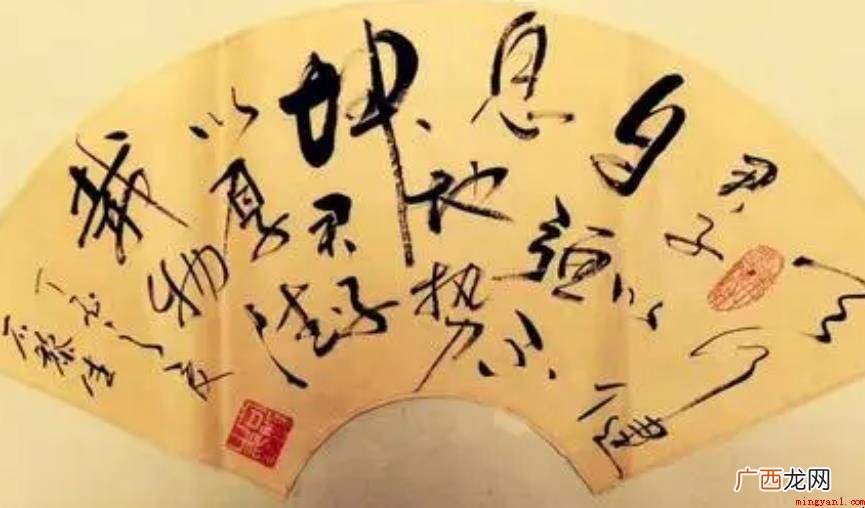 天行健
君子以
自强不
息地势
坤君子
以厚德
载物
广西龙网
mingyan1.com